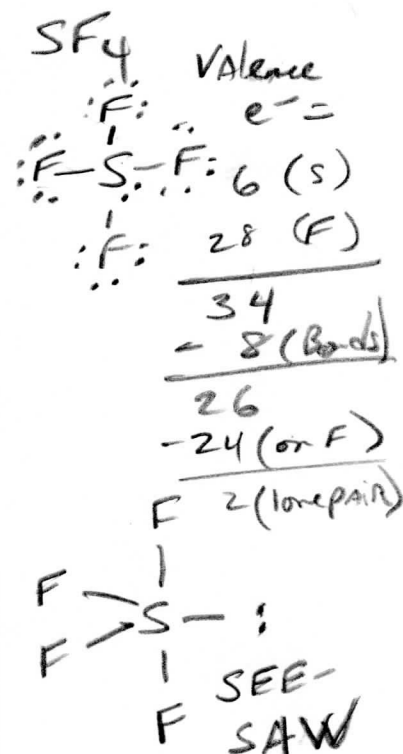 SF4
Valence
e⁻ =
:F:
:F—S—F:
:F:
6 (S)
28 (F)
34
- 8 (Bonds)
26
-24 (on F)
2 (lone pair)
F
F
S — :
F
F
SEE-
SAW